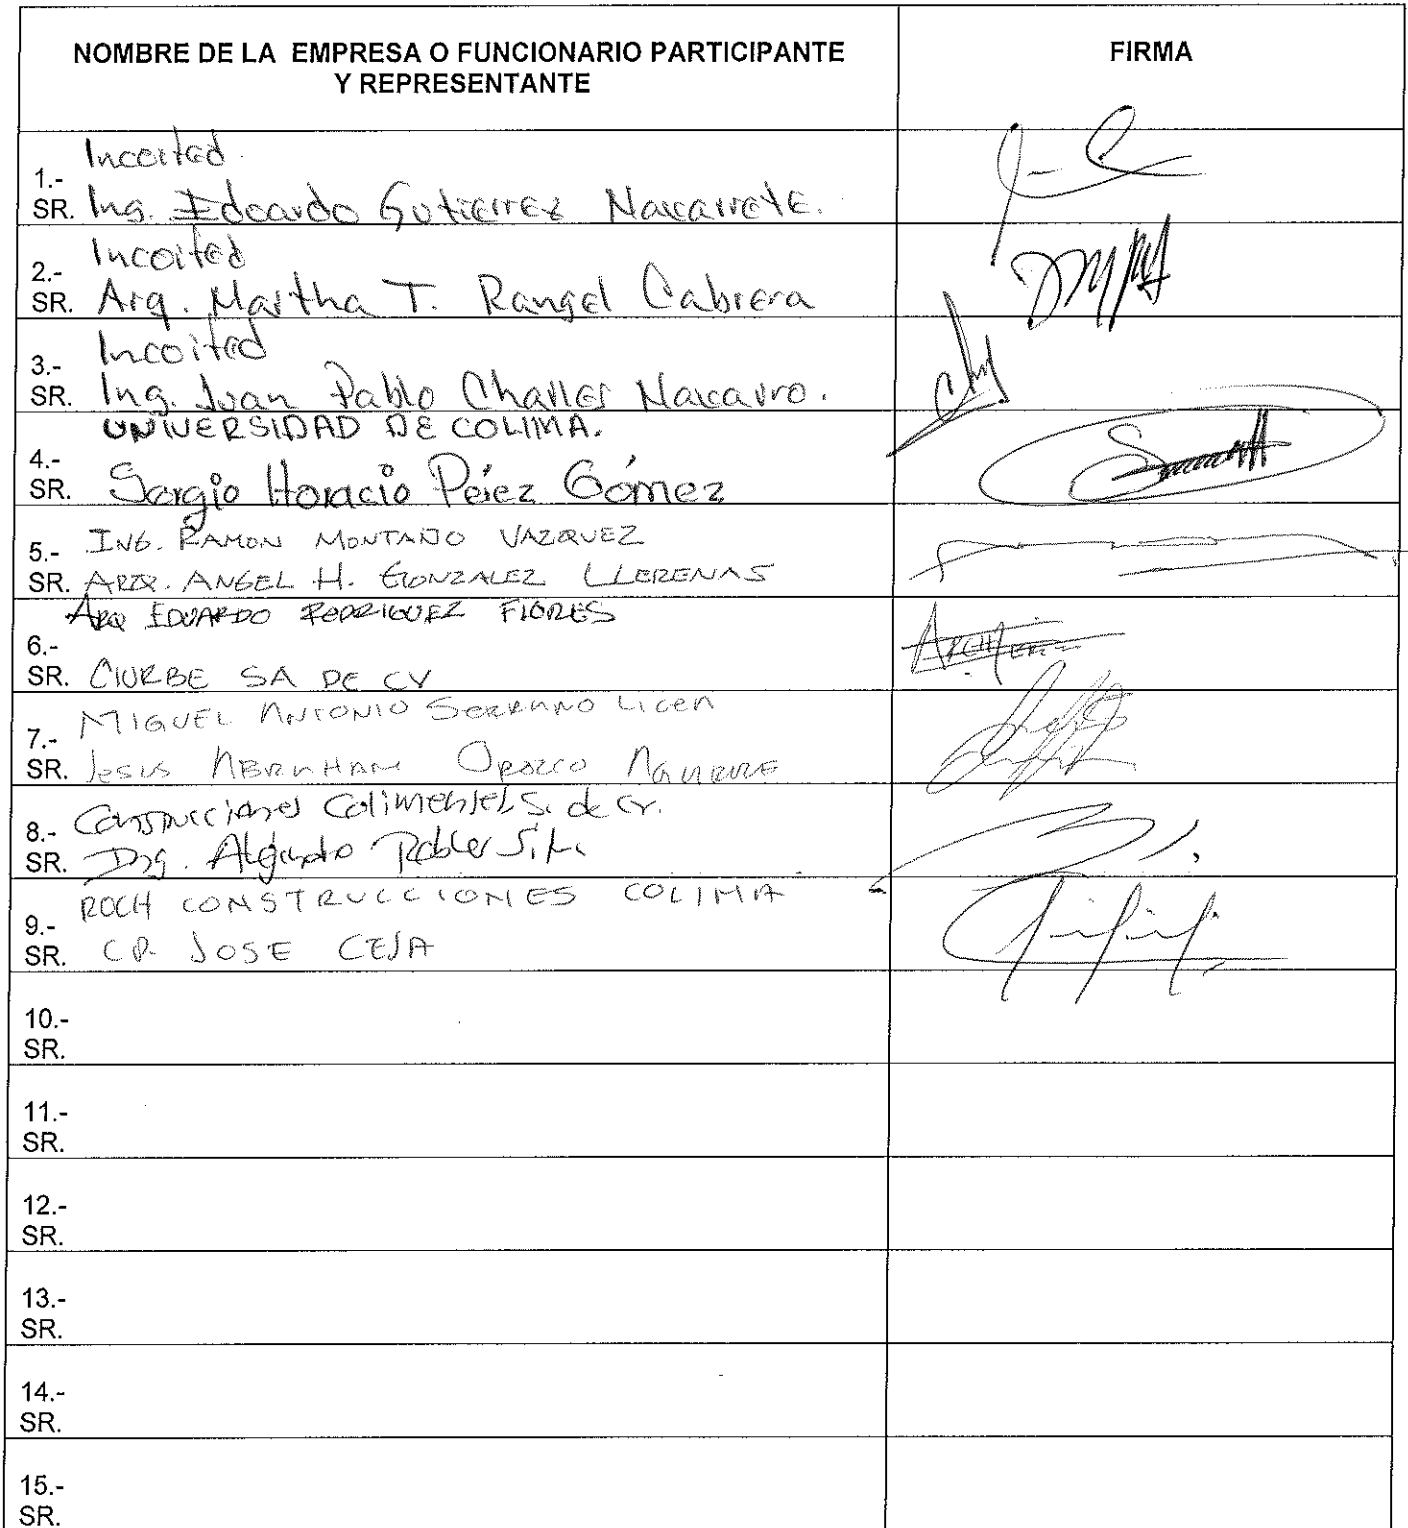 NOMBRE DE LA EMPRESA O FUNCIONARIO PARTICIPANTE
Y REPRESENTANTE
FIRMA
Incoifed
1.-
SR. Ing. Eduardo Gutierrez Navarrete.
Incoifed
2.-
SR. Arq. Martha T. Rangel Cabrera
Incoifed
3.-
SR. Ing. Juan Pablo Navarro.
UNIVERSIDAD DE COLIMA.
4.-
SR. Sergio Horacio Pérez Gómez
5.- ING. RAMON MONTAÑO VAZQUEZ
SR. ARQ. ANGEL H. GONZALEZ LLERENAS
ARQ EDUARDO RODRIGUEZ FLORES
6.-
SR. CIURBE SA DE CV
MIGUEL ANTONIO SERRANO LICEA
7.-
SR. Jesus ABRAHAM OROZCO AGUIRRE
8.- Construcciones Colimenses S. de
SR. Ing. Alejandro Robles
ROCH CONSTRUCCIONES COLIMA
9.-
SR. CP. JOSE CEJA
10.-
SR.
11.-
SR.
12.-
SR.
13.-
SR.
14.-
SR.
15.-
SR.